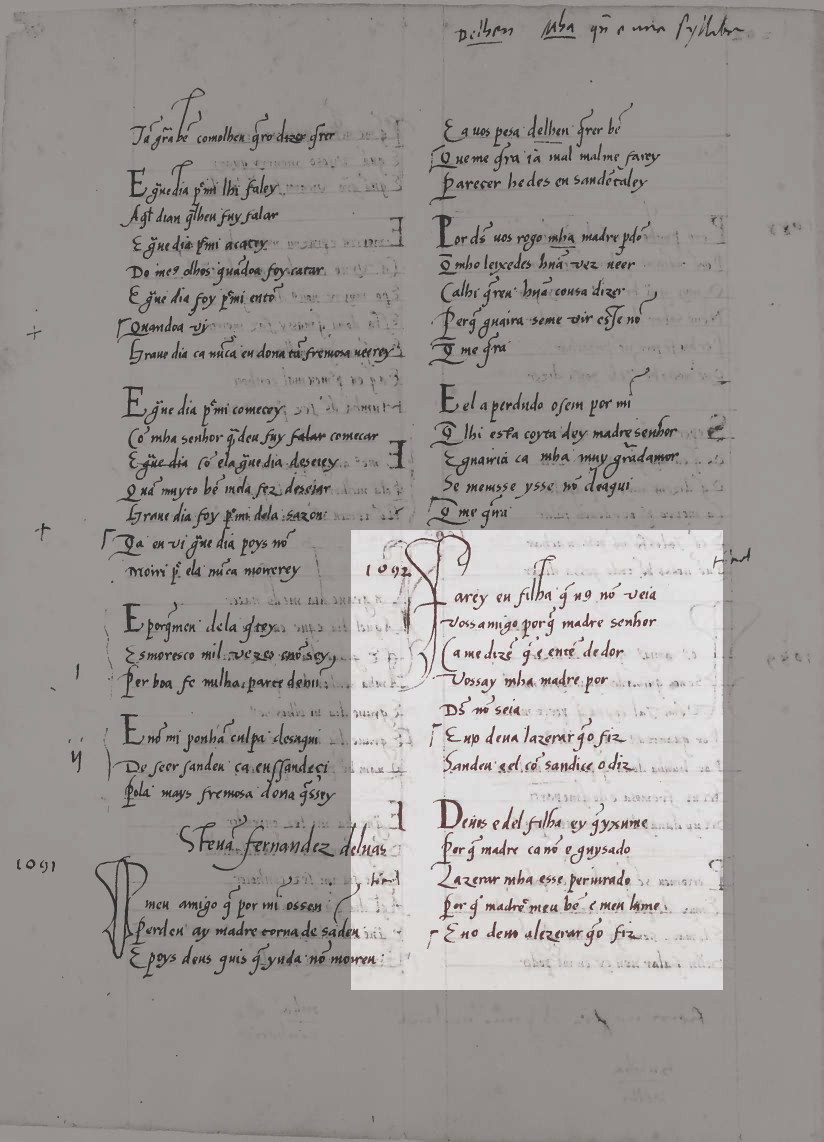 Delhen mha qñ e una syllaba
Tã grã bẽ comolheu q̃ro dizer q̃rer
E g̃ue dia p̃mi lhi faley
Aq̃l dian q̃lheu fuy falar
E g̃ue dia p̃mi acatey
Do me9 olhos quãdoa foy catar
E g̃ue dia foy p̃mi entõ
Quandoa vi
Graue dia ca nũca eu dona tã fremosa ueerey
E g̃ue dia p̃mi comecey
Cõ mha senhor q̃deu fuy falar comecar
E g̃ue dia cõ ela g̃ue dia deseiey
Quã muyto bẽ mela fez deseiar
Graue dia foy p̃mi dela sazon
Ca eu vi g̃ue dia poys nõ
Moiri p̃ ela nũca morrerey
E porq̃men dela q̃tey
Esmoresco mil vezes enõ sey
Per boa fe nulha parte demi
E nõ mi ponhã culpa desaqui
De seer sandeu ca enssandeci
Pola mays fremosa dona q̃ssey
Steuã fernandez deluas
1091
tind
O meu amigo q̃ por mi o ssen
Perdeu ay madre torna de sãdeu
E poys deus quis q̃ ynda nõ morreu
E a uos pesa delhen q̃rer bẽ
Que me q̃ra ia mal malme farey
Parecer hedes en sandẽ taley
Por ds̃ uos rogo mha madre pdõ
Q̃ mho leixedes hũa vez ueer
Ca lhi q̃reu hũa cousa dizer
Perq̃ guaira seme vir esse nõ
Q̃ me q̃ra
E el a perdudo o sem por mi
Q̃ lhi esta coyta dey madre senhor
E guairia ca mha muy grãdamor
Se meusse ysse nõ deaqui
Q̃ me q̃ra
1092
tind
Farey eu filha q̃ u9 nõ veia
Vossamigo porq̃ madre senhor
Ca me dizẽ q̃ e entẽ de dor
Vossay mha madre por
Ds̃ nõ seia
E upo deua lazerar q̃o fiz
Sandeu e el cõ sandice o diz
Deuos e del filha ey q̃yxume
Por q̃ madre ca nõ e guysado
Lazerar mha esse periurado
Por q̃ madre meu bẽ e meu lume
E uo deuo alezerar q̃o fiz